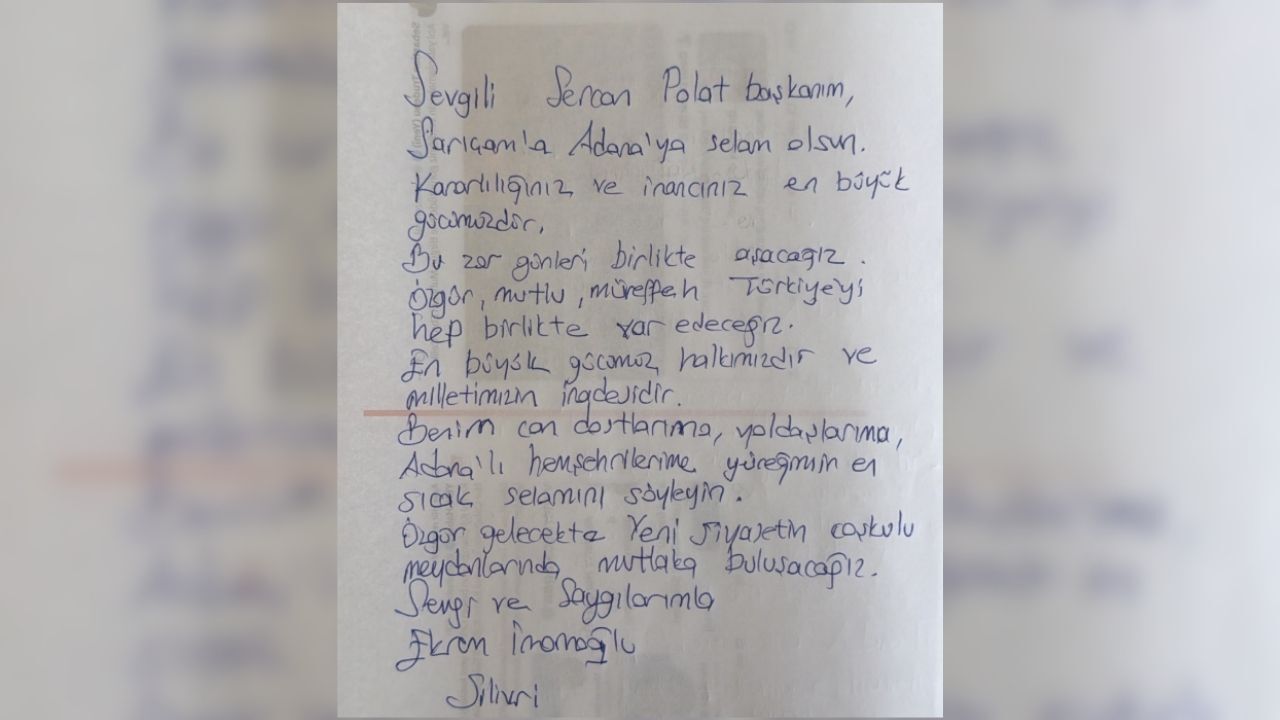 Sevgili Sercan Polat başkanım,
Sarıçam'a Adana'ya selam olsun.
Kararlılığınız ve inancınız en büyük
gücümüzdür,
Bu zor günleri birlikte aşacağız.
Özgür, mutlu, müreffeh Türkiye'yi
hep birlikte var edeceğiz.
En büyük gücümüz halkımızdır ve
milletimizin iradesidir.
Benim can dostlarıma, yoldaşlarıma,
Adana'lı hemşehrilerime yüreğimin en
sıcak selamını söyleyin.
Özgür gelecekte Yeni siyasetin coşkulu
meydanlarında mutlaka buluşacağız.
Sevgi ve Saygılarımla
Ekrem İmamoğlu
Silivri